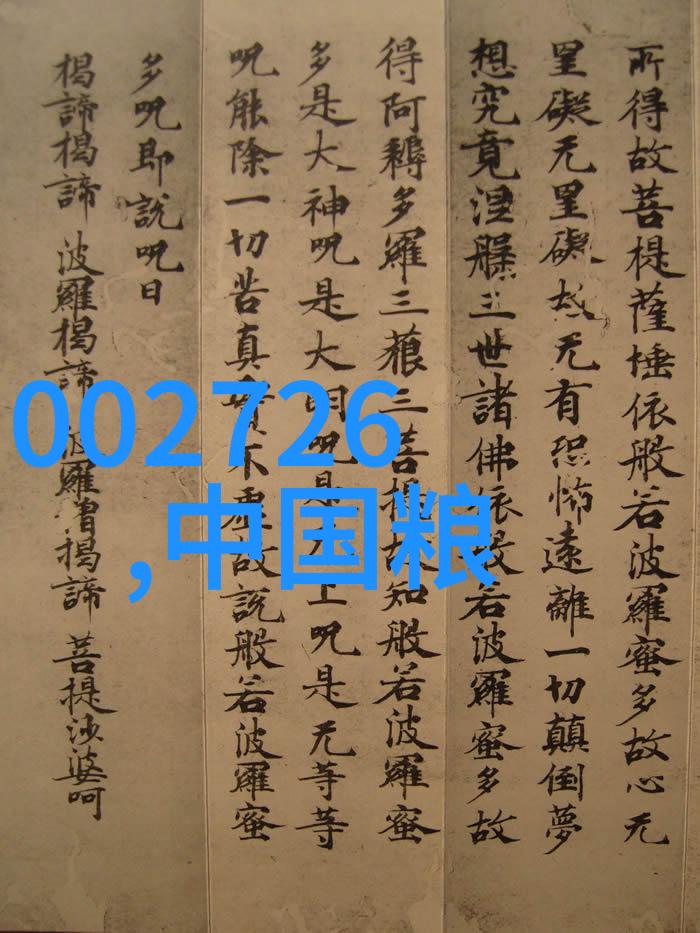 所得故菩提薩埵依般若波羅蜜多故心无
罣礙无罣礙故无有恐怖遠離一切顛倒夢
想究竟涅槃三世諸佛依般若波羅蜜多故
得阿耨多羅三藐三菩提故知般若波羅蜜
多是大神呪是大明呪是无上呪是无等等
呪能除一切苦真實不虛故說般若波羅蜜
多呪即說呪曰
揭諦揭諦 波羅揭諦 波羅僧揭諦 菩提沙婆呵
002726
,中国粮